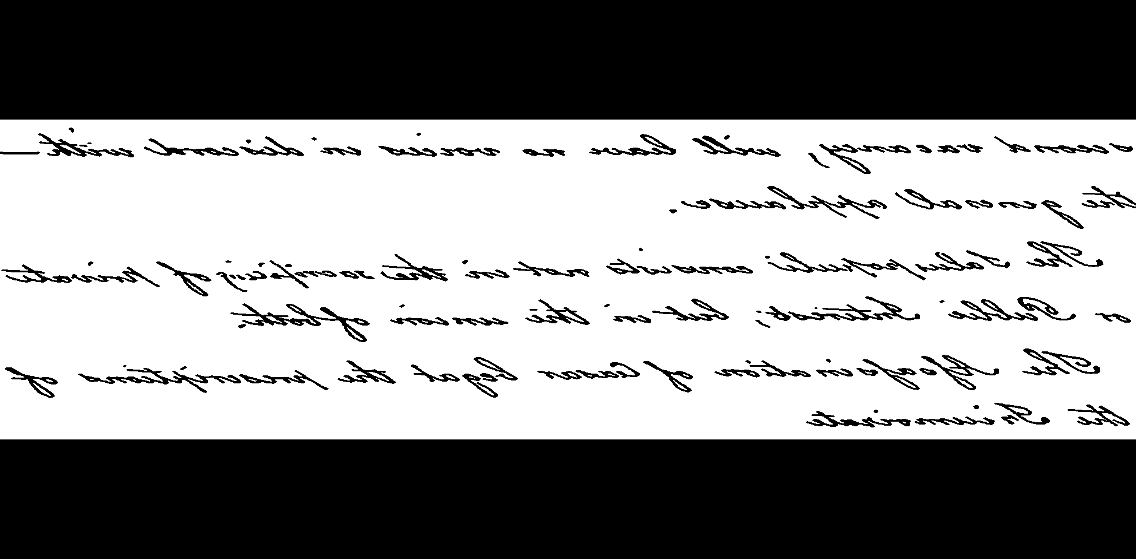 second vacancy, will have no voices in discord with—
the general applause.
The Salus populi consists not in the sacrificing of private
or Public Interest; but in the union of both.
The Assassination of Caesar begat the proscriptions of
the Triumvirate